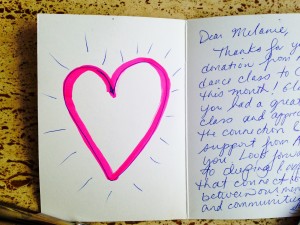 Dear Melanie,
Thanks for yo
donation from
dance class to
this month! Gla
you had a grea
class and appre
the connection
support from
you. Look forwa
to deeping
that connect
between our
and communit